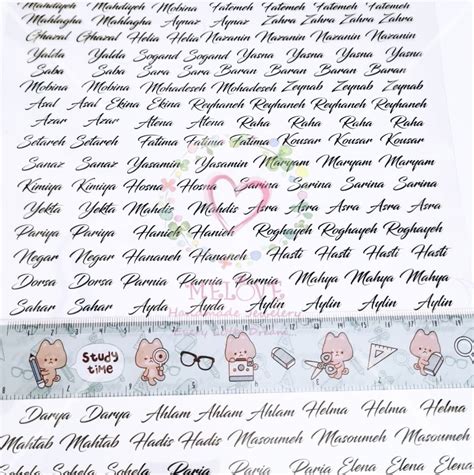 Mahdiyeh Mahdiyeh Mobina Fatemeh Fatemeh Fatemeh
Mahlagha Mahlagha Aynaz Aynaz Zahra Zahra Zahra Zahra
Ghazal Ghazal Helia Helia Nazanin Nazanin Nazanin
Yalda Yalda Sogand Sogand Yasna Yasna Yasna
Saba Saba Sara Sara Baran Baran Baran
Mobina Mobina Mohadeseh Mohadeseh Zeynab Zeynab Zeynab
Asal Asal Ekina Ekina Reyhaneh Reyhaneh Reyhaneh
Azar Azar Atena Atena Raha Raha Raha
Setareh Setareh Fatima Fatima Fatima Kousar Kousar
Sanaz Sanaz Yasamin Yasamin Maryam Maryam Maryam
Kimiya Kimiya Hosna Hosna Sarina Sarina Sarina
Yekta Yekta Mahdis Mahdis Asra Asra Asra Asra
Pariya Pariya Hananeh Hananeh Roghayeh Roghayeh
Negar Negar Hananeh Hananeh Hasti Hasti Hasti
Dorsa Dorsa Parnia Parnia Parnia Mahya Mahya Mahya
MELOVE
Sahar Sahar Ayda Ayda Aylin Aylin Aylin
Handmade Jewelery
Study time
Darya Darya Ahlam Ahlam Ahlam Helma Helma
Mahtab Mahtab Hadis Hadis Masoumeh Masoumeh
Sohela Sohela Paria Paria Paria Elena Elena Elena